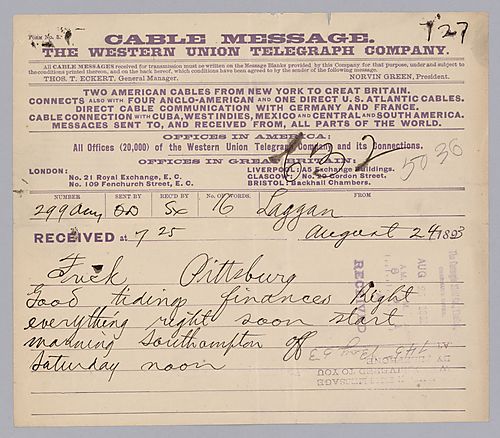 FORM No. 8.
127
CABLE MESSAGE.
THE WESTERN UNION TELEGRAPH COMPANY.
All CABLE MESSAGES received for transmission must be written on the Message Blanks provided by this Company for that purpose, under and subject to
the conditions printed thereon, and on the back hereof, which conditions have been agreed to by the sender of the following message.
THOS. T. ECKERT, General Manager. NORVIN GREEN, President.
TWO AMERICAN CABLES FROM NEW YORK TO GREAT BRITAIN.
CONNECTS ALSO WITH FOUR ANGLO-AMERICAN AND ONE DIRECT U.S. ATLANTIC CABLES.
DIRECT CABLE COMMUNICATION WITH GERMANY AND FRANCE.
CABLE CONNECTION WITH CUBA, WEST INDIES, MEXICO AND CENTRAL AND SOUTH AMERICA.
MESSAGES SENT TO, AND RECEIVED FROM, ALL PARTS OF THE WORLD.
OFFICES IN AMERICA:
All Offices (20,000) of the Western Union Telegraph Company and its Connections.
OFFICES IN GREAT BRITAIN:
LONDON: LIVERPOOL: A5 Exchange Buildings.
No. 21 Royal Exchange, E. C. GLASGOW: No. Gordon Street.
No. 109 Fenchurch Street, E. C. BRISTOL: Backhall Chambers.
5036
NUMBER SENT BY REC'D BY No. OF WORDS. FROM
16 Laggan
RECEIVED at 7 25 August 24 1893
Frick Pittsburg
Good tidings finances Right
everything right soon start
morning Southampton off
Saturday noon
RECEIVED